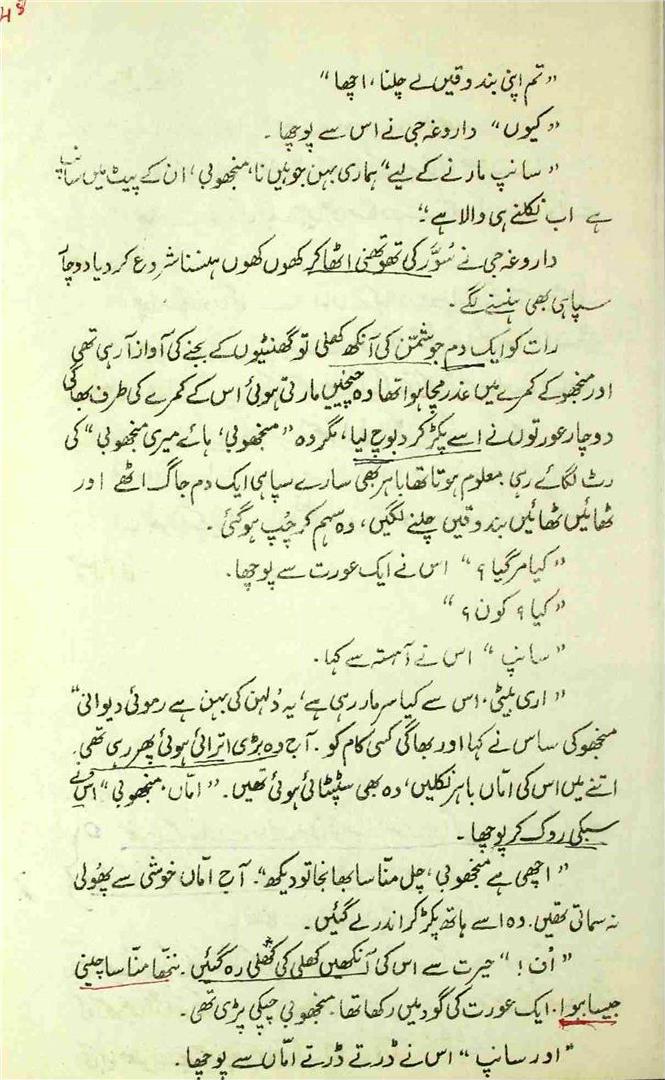 ۴۸
"تم اپنی بندوقیں لے چلنا، اچھا"
"کیوں" داروغہ جی نے اس سے پوچھا۔
"سانپ مارنے کے لیے" ہماری بہن جو ہیں نا، منجھو بی، ان کے پیٹ میں سانپ
ہے اب نکلنے ہی والا ہے۔"
داروغہ جی نے سُوَّر کی تھوتھنی اٹھا کر کھوں کھوں ہنسنا شروع کر دیا دو چار
سپاہی بھی ہنسنے لگے۔
رات کو ایک دم جو شمّن کی آنکھ کھلی تو گھنٹیوں کے بجنے کی آواز آ رہی تھی
اور منجھو کے کمرے میں غدر مچا ہوا تھا وہ چیخیں مارتی ہوئی اس کے کمرے کی طرف بھاگی
دو چار عورتوں نے اسے پکڑ کر دبوچ لیا، مگر وہ "منجھو بی، ہائے میری منجھو بی" کی
رٹ لگائے رہی معلوم ہوتا تھا باہر بھی سارے سپاہی ایک دم جاگ اٹھے اور
ٹھائیں ٹھائیں بندوقیں چلنے لگیں، وہ سہم کر چُپ ہو گئی۔
"کیا مر گیا؟" اس نے ایک عورت سے پوچھا۔
"کیا؟ کون؟"
"سانپ" اس نے آہستہ سے کہا۔
"اری بیٹی، اس سے کیا سر مار رہی ہے، یہ دُلہن کی بہن ہے رموئی دیوانی"
منجھو کی ساس نے کہا اور بھاگی کسی کام کو۔ آج وہ بڑی اترائی ہوئی پھر رہی تھی۔
اتنے میں اس کی امّاں باہر نکلیں، وہ بھی سٹپٹائی ہوئی تھیں۔ "امّاں، منجھو بی" اس نے
سبکی روک کر پوچھا۔
"اچھی ہے منجھو بی، چل منّا سا بھانجا تو دیکھ"۔ آج امّاں خوشی سے پھُولی
نہ سماتی تھیں۔ وہ اسے ہاتھ پکڑ کر اندر لے گئیں۔
"اُن!" حیرت سے اس کی آنکھیں کھلی کی کھلی رہ گئیں۔ ننھّا منّا سا چینی
جیسا ببوا، ایک عورت کی گود میں رکھا تھا۔ منجھو بی چپکی پڑی تھی۔
"اور سانپ" اس نے ڈرتے ڈرتے امّاں سے پوچھا۔